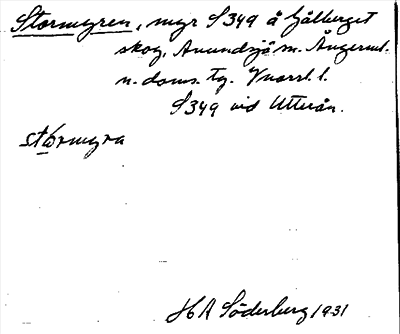 Stormyren, myr S 349 å Gålberget
skog, Anundsjö sn. Ångerml.
n. doms. tg. Vnorrl. l.
S 349 vid Utterån.
stórmyra
HA Söderberg 1931